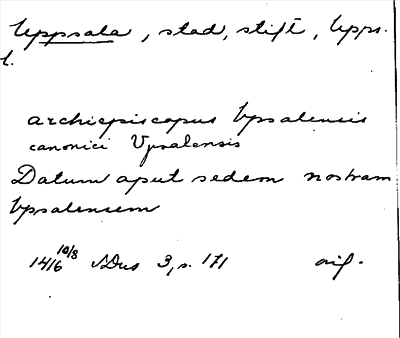 Uppsala, stad, stift, Upps.
l.
archiepiscopus Vpsalensis
canonici Vpsalensis
Datum aput sedem nostram
Vpsalensem
1416 10/8 SDns 3, s. 171 orig.